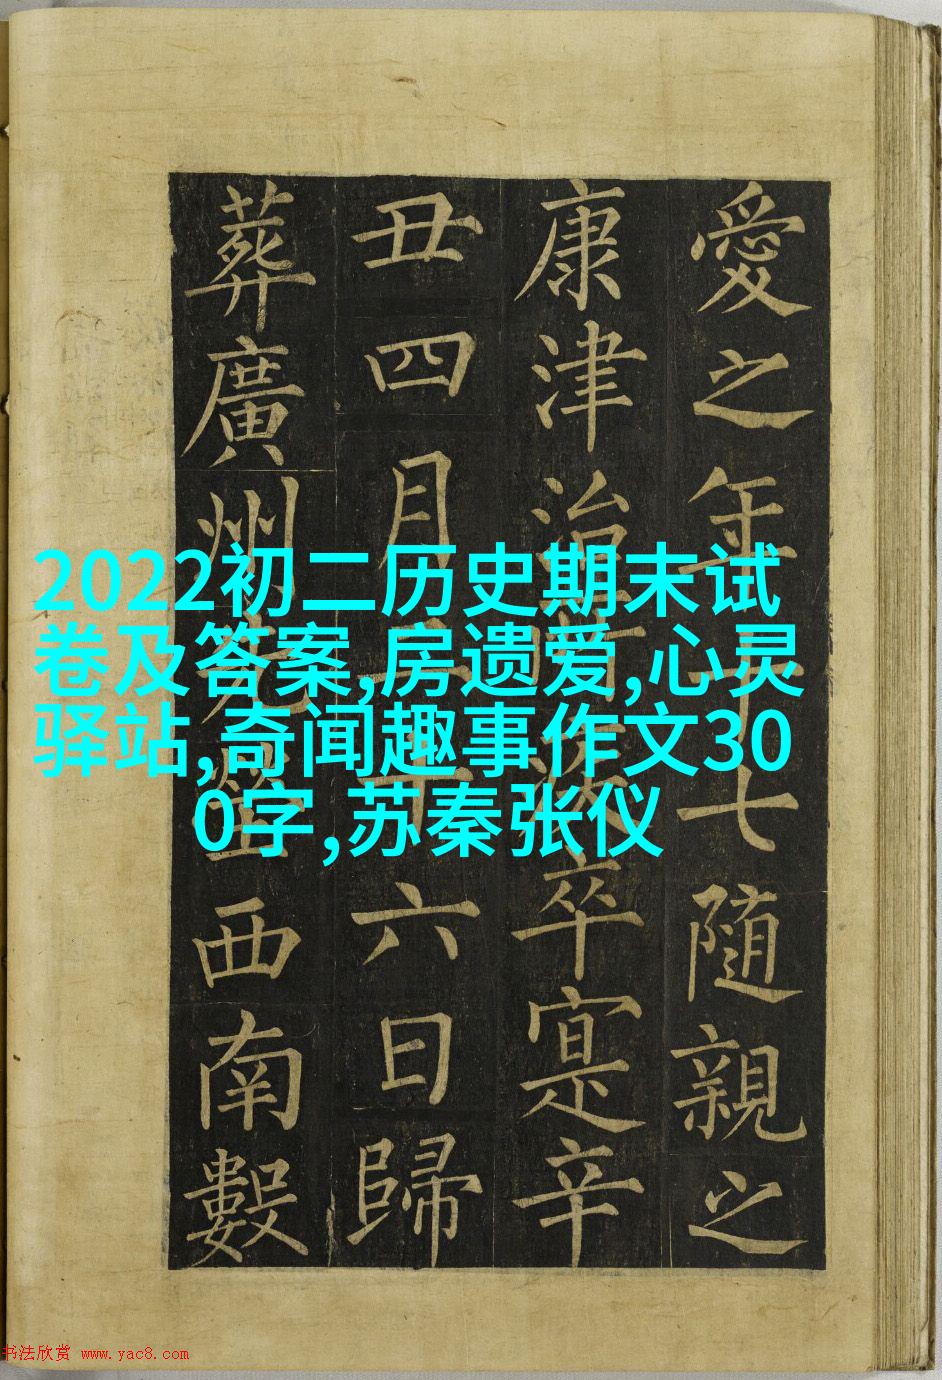 2022初二历史期末试
卷及答案,房遗爱,心灵
驿站,奇闻趣事作文30
0字,苏秦张仪
愛之年七隨親之
康津治卒寔辛
丑四月十六日歸
葬廣州西南數
书法欣赏 www.yac8.com